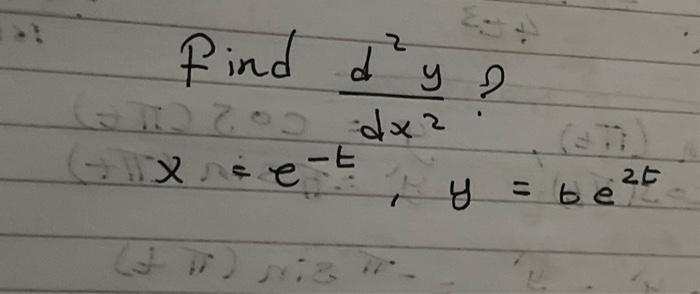 Find d²y/dx² ?
x = e^-t , y = te^2t